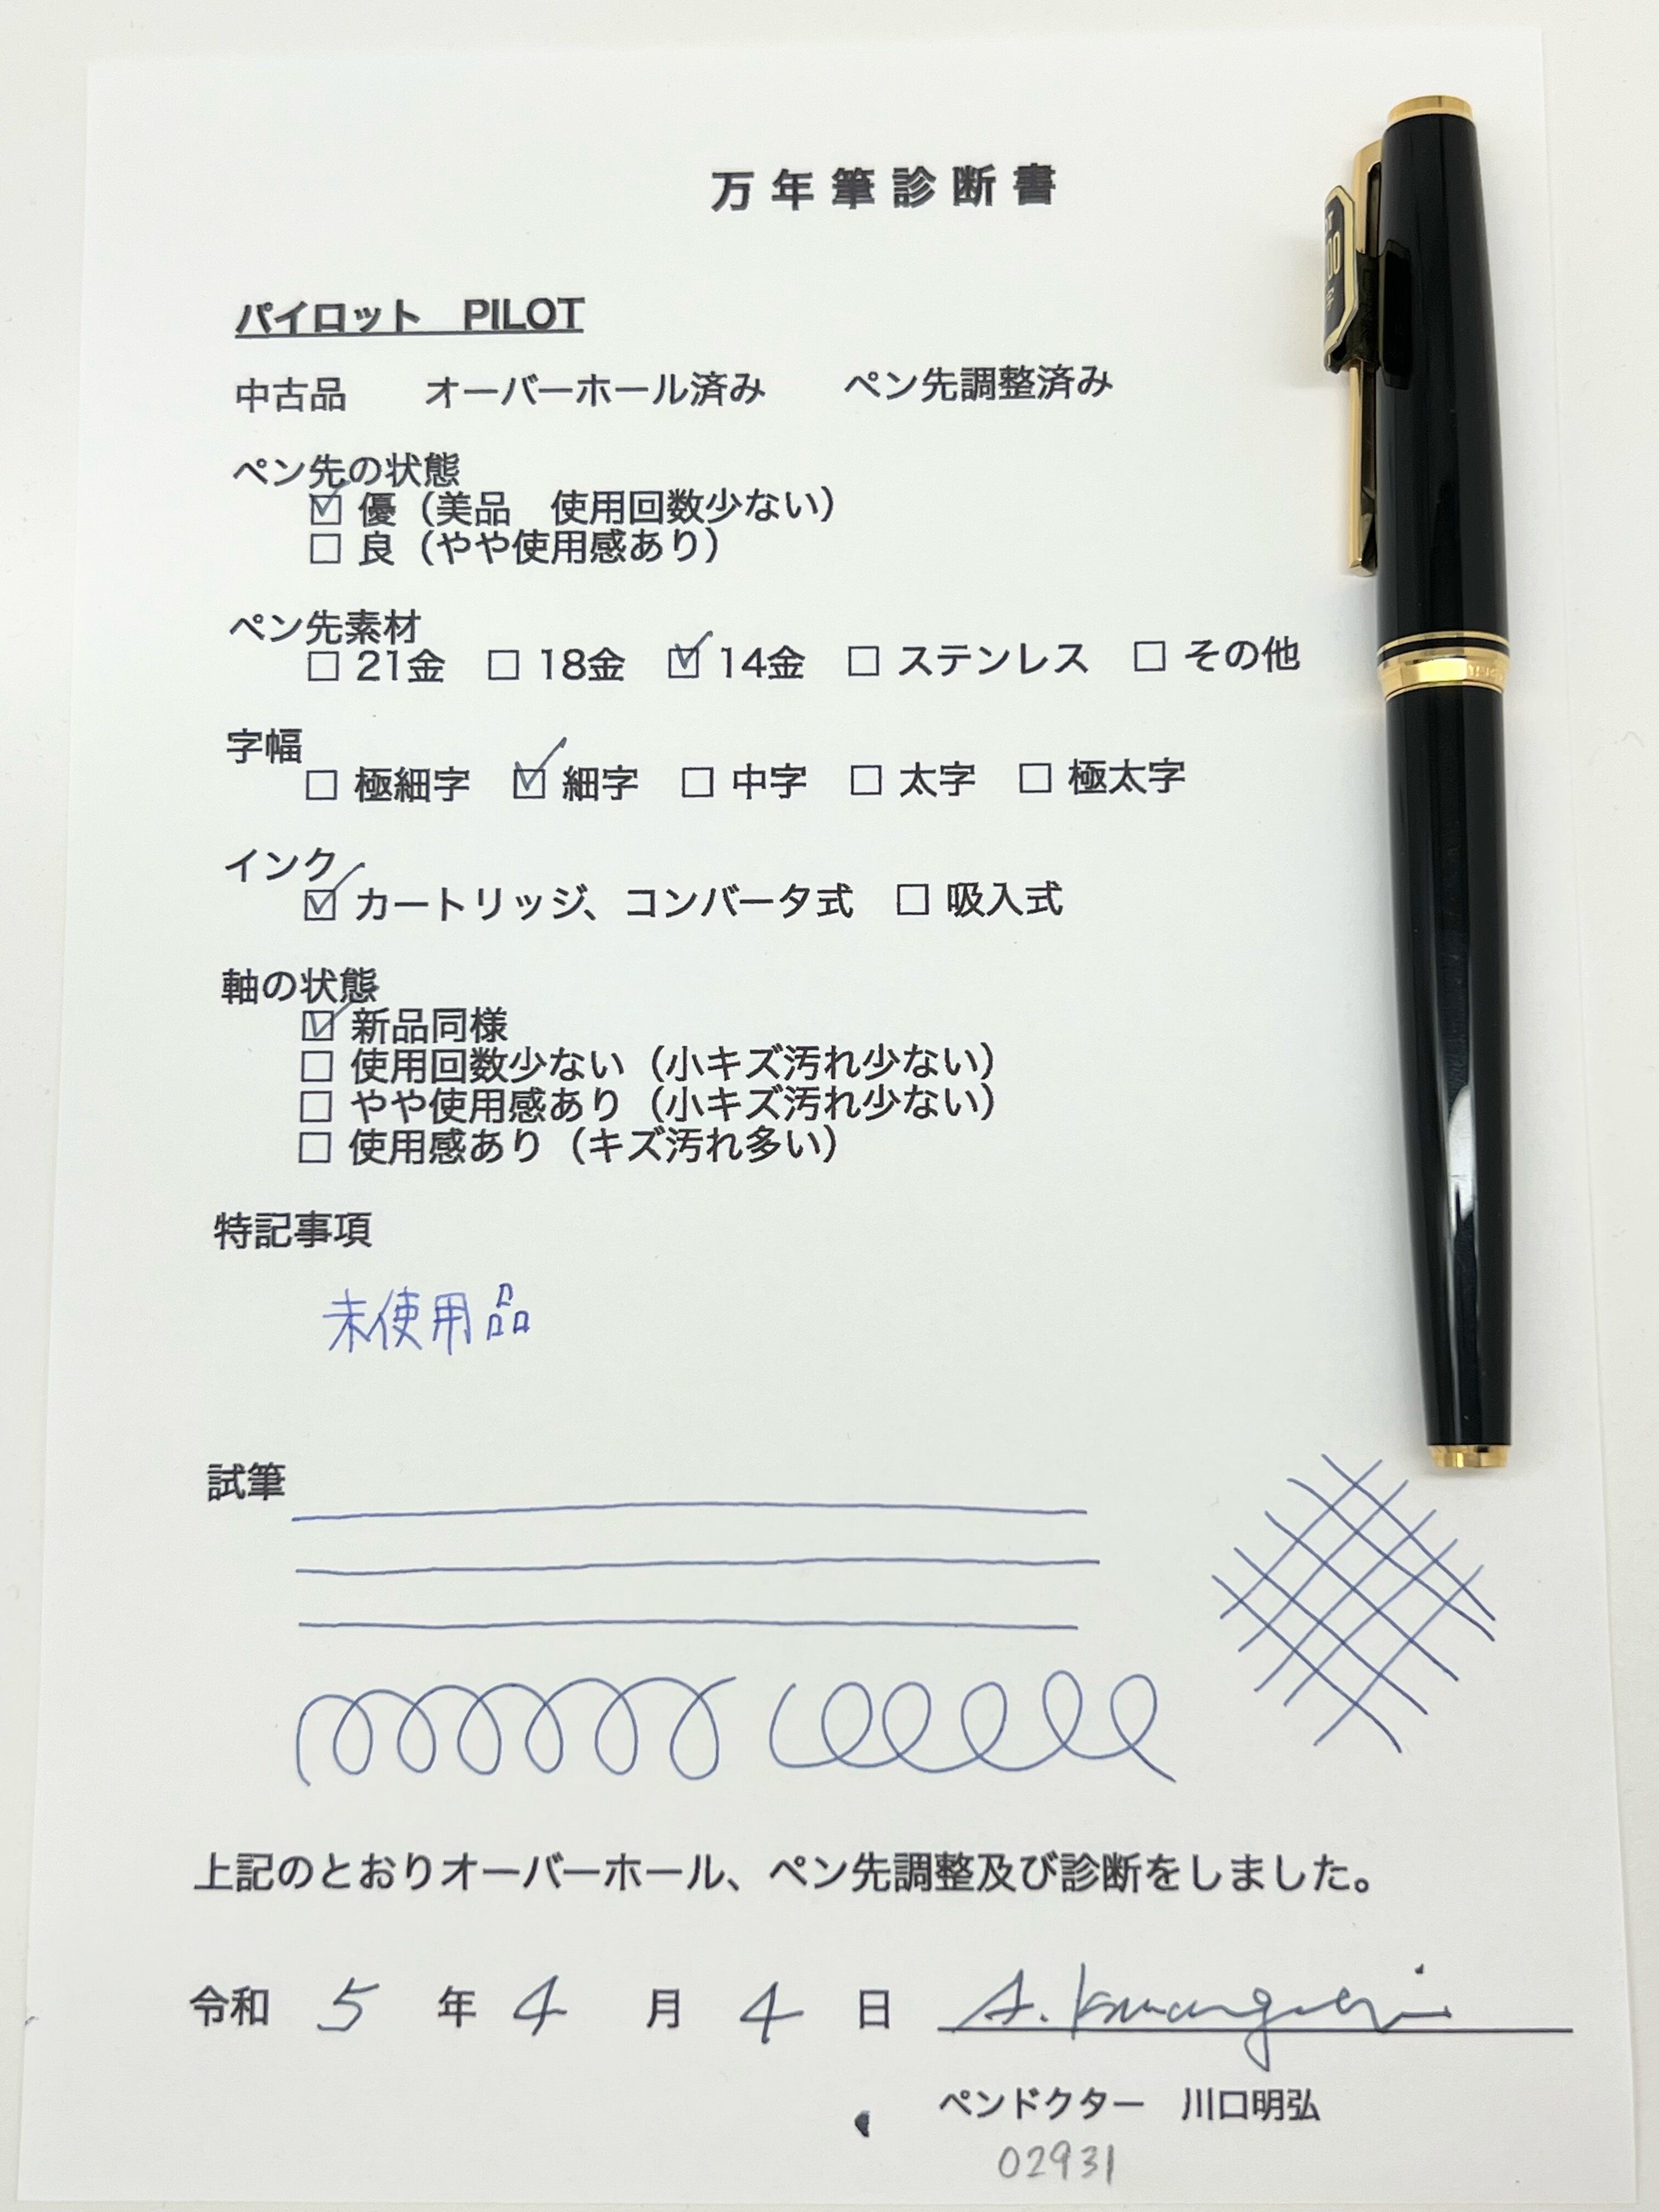 万年筆診断書
パイロット　PILOT
中古品　　オーバーホール済み　　ペン先調整済み
ペン先の状態
☑ 優（美品　使用回数少ない）
☐ 良（やや使用感あり）
ペン先素材
☐ 21金　☐ 18金　☑ 14金　☐ ステンレス　☐ その他
字幅
☐ 極細字　☑ 細字　☐ 中字　☐ 太字　☐ 極太字
インク
☑ カートリッジ、コンバータ式　☐ 吸入式
軸の状態
☑ 新品同様
☐ 使用回数少ない（小キズ汚れ少ない）
☐ やや使用感あり（小キズ汚れ少ない）
☐ 使用感あり（キズ汚れ多い）
特記事項
未使用品
試筆
上記のとおりオーバーホール、ペン先調整及び診断をしました。
令和 5 年 4 月 4 日 A. Kawaguchi
ペンドクター　川口明弘
02931